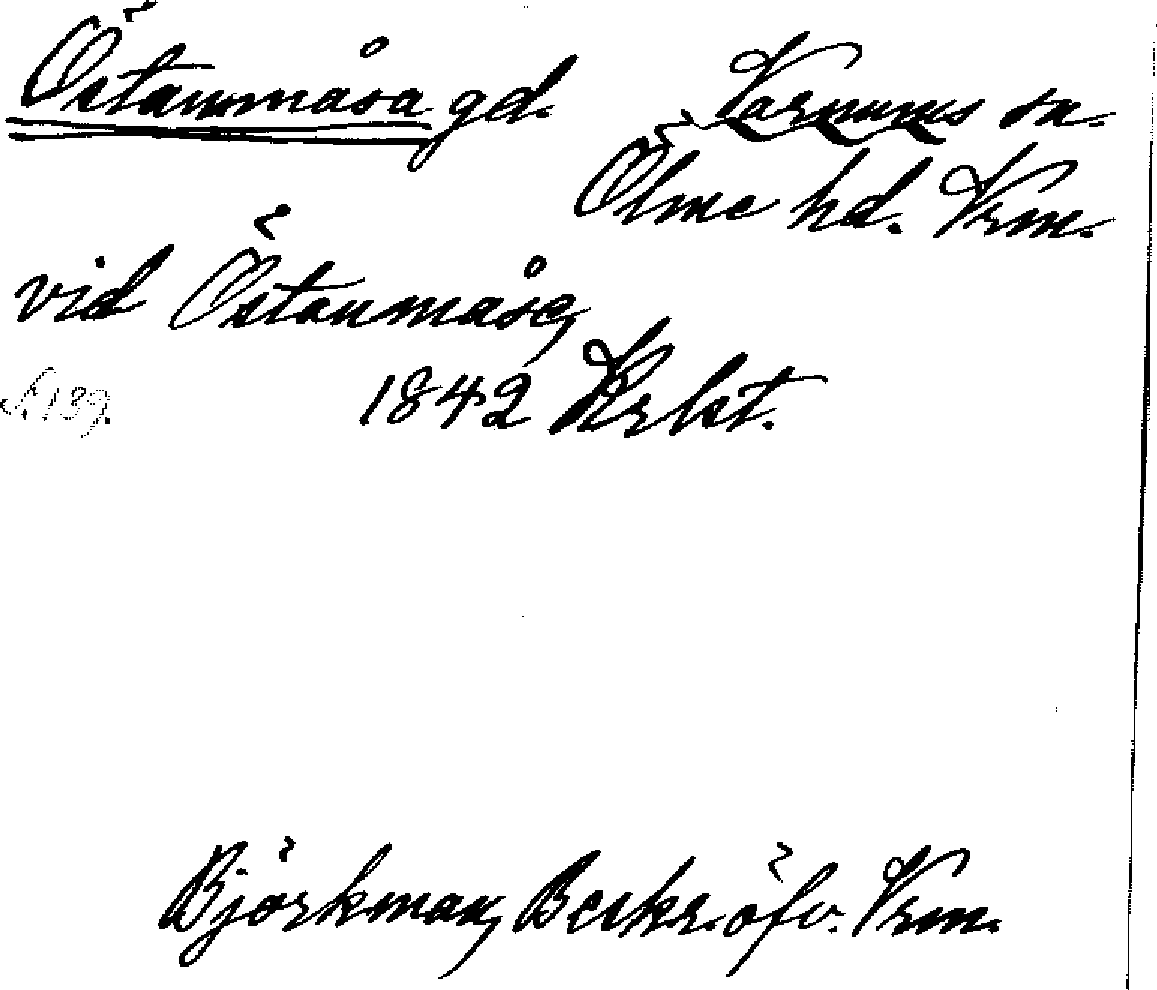 Östanmåsa gd. Varnums sn.
Ölme hd. Vrm.
vid Östanmåse,
1842 Krbt.
s. 139.
Björkman, Beskr. öfv. Vrm.